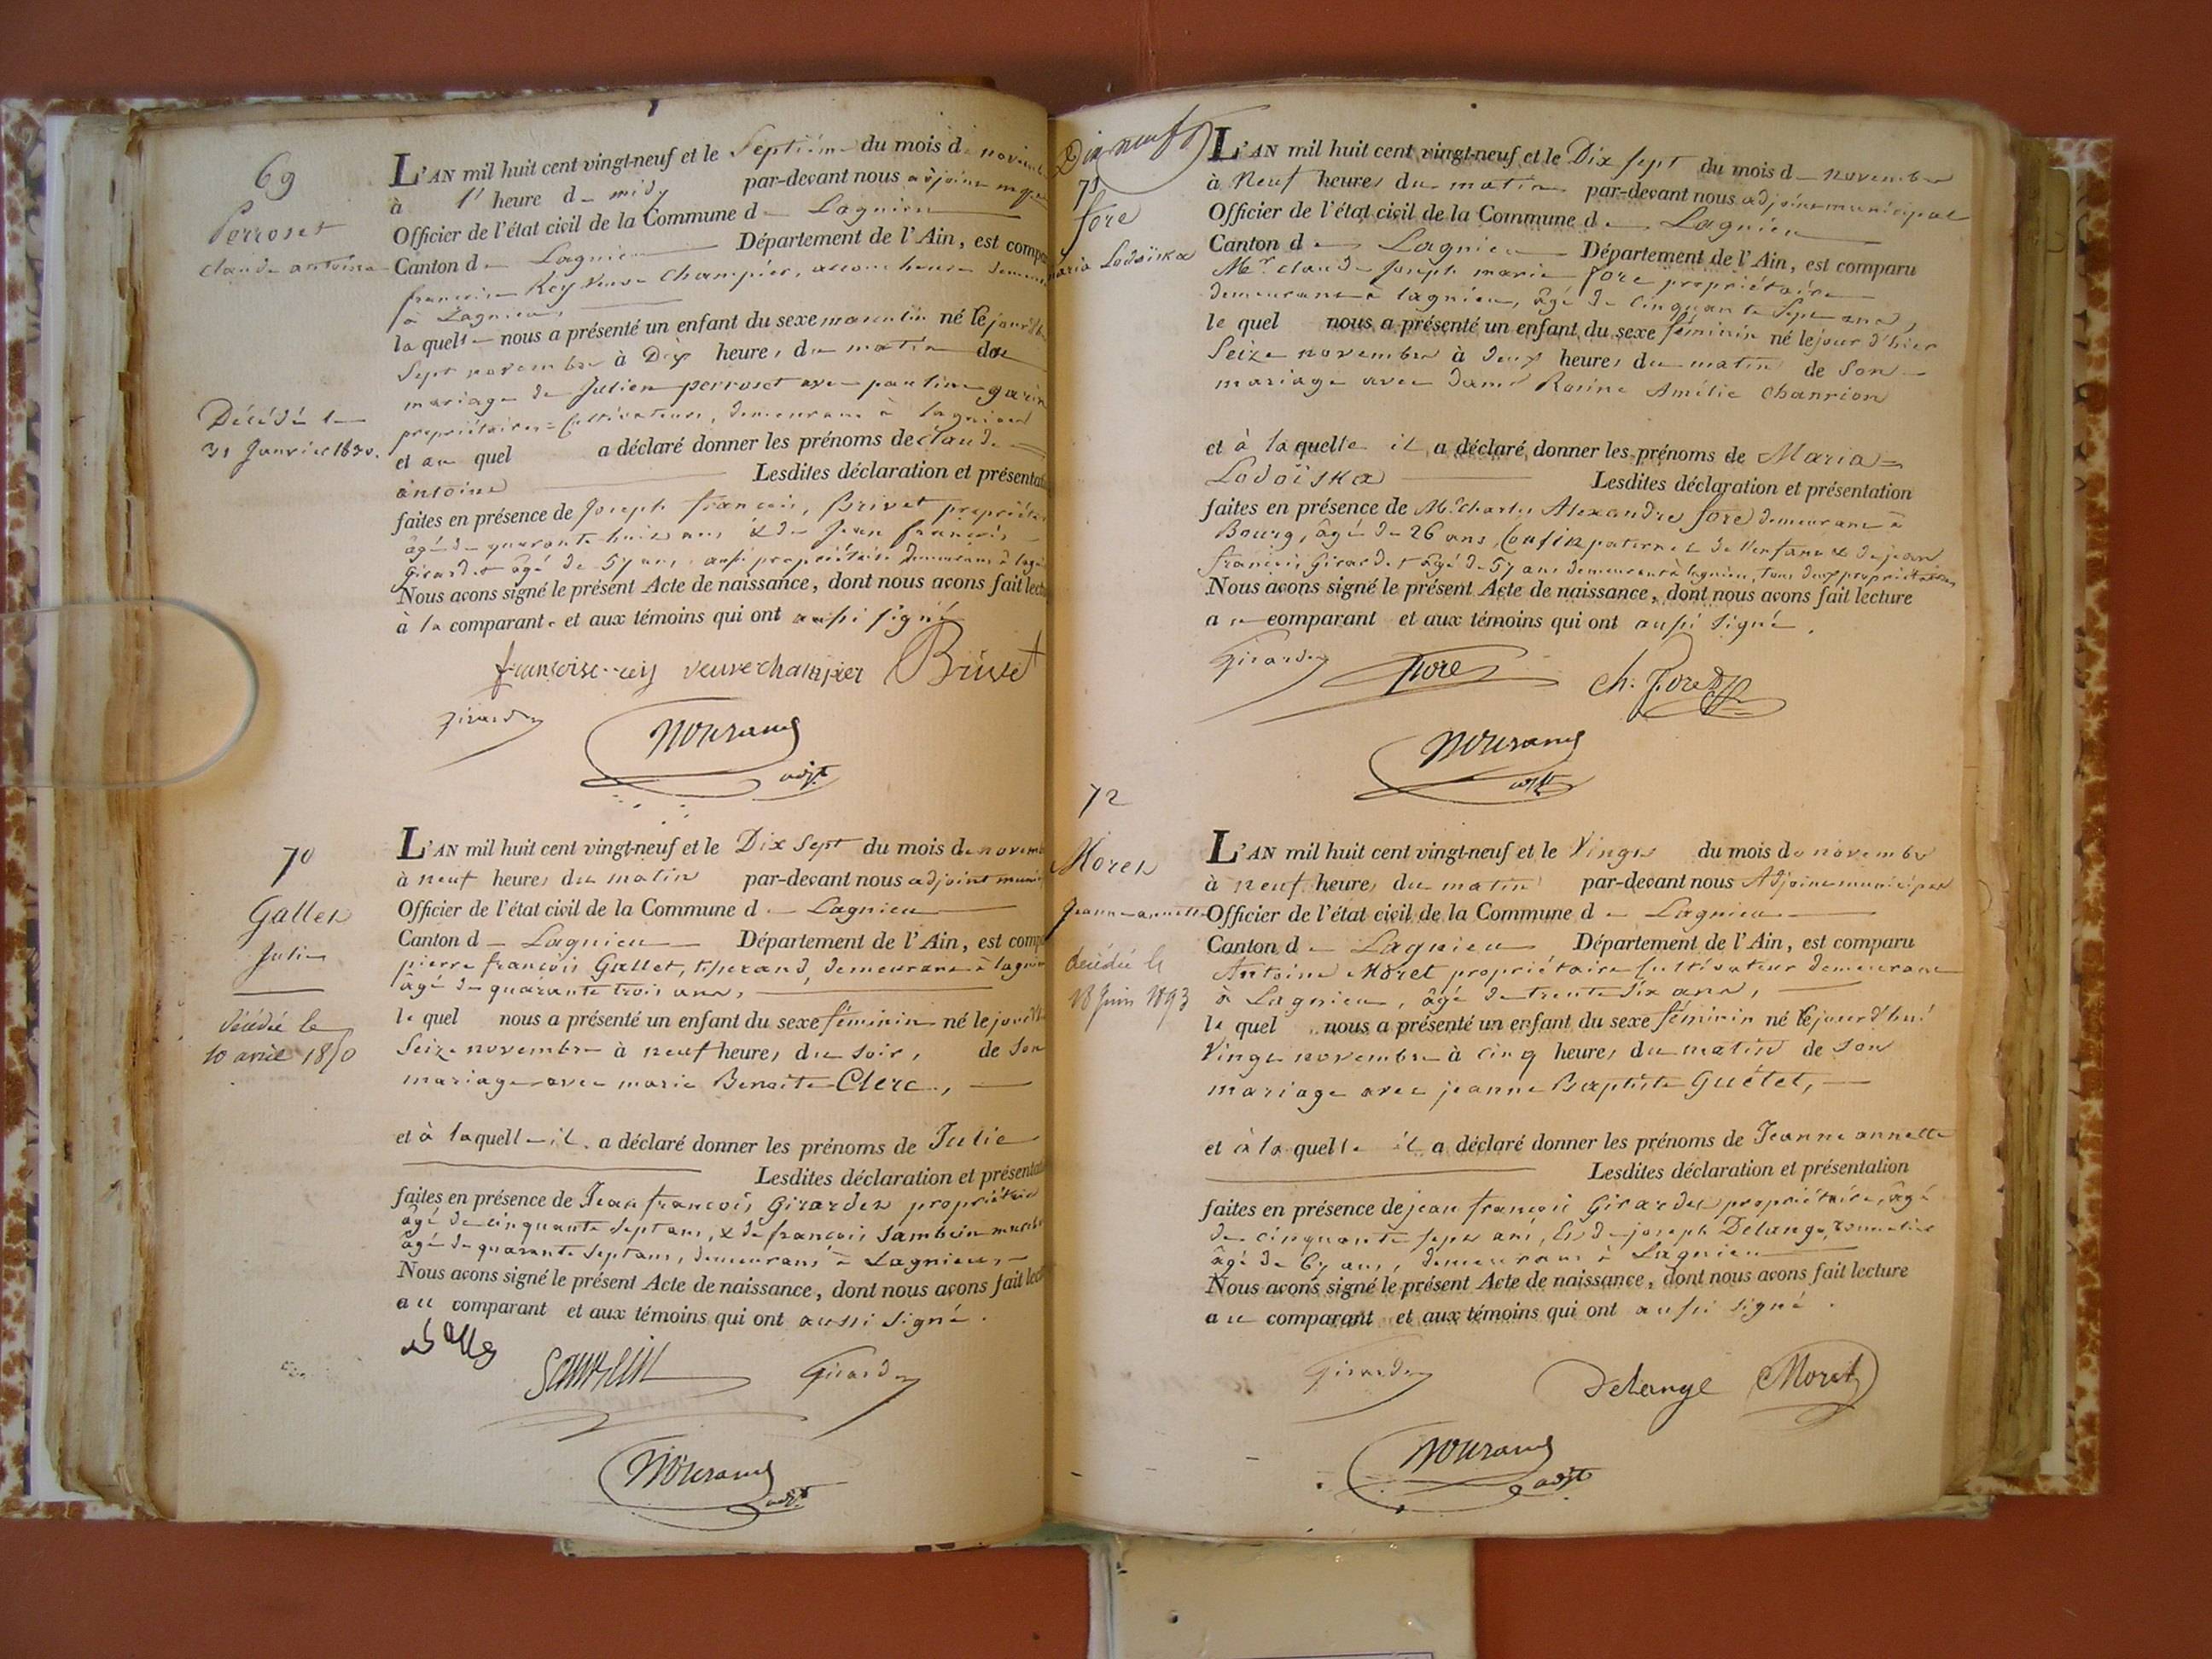 69
Perroset
claude antoine
Décédé le
31 Janvier 1830.
L'AN mil huit cent vingt-neuf et le Septième du mois de novemb
à l' heure de midy par-devant nous adjoint
Officier de l'état civil de la Commune d Lagnieu
Canton de Lagnieu Département de l'Ain, est compa
françoise Rey veuve Champier, accoucheuse demeur
à Lagnieu,
la quelle nous a présenté un enfant du sexe masculin né le jour
Sept novembre à Dix heures du matin du
mariage de Julien perroset avec pauline garin
propriétaires-Cultivateurs, demeurans à lagnieu
et au quel a déclaré donner les prénoms de claude
antoine Lesdites déclaration et présentat
faites en présence de Joseph françois, Brivet propriétai
âgé de quarante huit ans & de Jean françois
Girardet âgé de 57 ans, aussi propriétaire demeurans à lagn
Nous avons signé le présent Acte de naissance, dont nous avons fait lect
à la comparante et aux témoins qui ont aussi signé
françoise rey veuve champier Brivet
girardet
adjt
70
Gallet
Julie
décédée le
10 avril 1850
L'AN mil huit cent vingt-neuf et le Dix Sept du mois de novemb
à neuf heures du matin par-devant nous adjoint munic
Officier de l'état civil de la Commune d Lagnieu
Canton d Lagnieu Département de l'Ain, est comp
pierre françois Gallet, tisserand, demeurant à lagnieu
âgé de quarante trois ans,
le quel nous a présenté un enfant du sexe féminin né le jour d'h
Seize novembre à neuf heures du soir, de son
mariage avec marie Benoite Clerc,
et à laquelle il a déclaré donner les prénoms de Julie
Lesdites déclaration et présentat
faites en présence de Jean françois Girardet propriétaire
âgé de cinquante sept ans, & de françois Sambuin
âgé de quarante sept ans, demeurans à Lagnieu,
Nous avons signé le présent Acte de naissance, dont nous avons fait lect
au comparant et aux témoins qui ont aussi signé.
Girardet
adjt
Dix neuf
71
fore
maria Lodoïska
L'AN mil huit cent vingt-neuf et le Dix sept du mois d novembre
à Neuf heures du matin par-devant nous adjoint municipal
Officier de l'état civil de la Commune d Lagnieu
Canton d Lagnieu Département de l'Ain, est comparu
Mr claude Joseph marie fore propriétaire
demeurant à lagnieu, âgé de cinquante sept ans,
le quel nous a présenté un enfant du sexe féminin né le jour d'hier
Seize novembre à deux heures du matin de son
mariage avec dame Rosine Amélie Chanrion
et à laquelle il a déclaré donner les prénoms de Maria
Lodoïska Lesdites déclaration et présentation
faites en présence de Mr Charles Alexandre fore demeurant à
Bourg, âgé de 26 ans, Cousin paternel de l'enfant & de jean
françois Girardet âgé de 57 ans demeurant à lagnieu, tous deux propriétaires
Nous avons signé le présent Acte de naissance, dont nous avons fait lecture
au comparant et aux témoins qui ont aussi signé.
Girardet fore ch. fore
adjt
72
Moret
Jeanne annette
décédée le
18 Juin 1893
L'AN mil huit cent vingt-neuf et le Vingt du mois de novembre
à neuf heures du matin par-devant nous Adjoint municipal
Officier de l'état civil de la Commune d Lagnieu
Canton d Lagnieu Département de l'Ain, est comparu
Antoine Moret propriétaire Cultivateur demeurant
à Lagnieu, âgé de trente six ans,
le quel nous a présenté un enfant du sexe féminin né le jour d'hui
Vingt novembre à cinq heures du matin de son
mariage avec jeanne Baptiste Guétet,
et à la quelle il a déclaré donner les prénoms de Jeanne annette
Lesdites déclaration et présentation
faites en présence de jean françois Girardet propriétaire, âgé
de cinquante sept ans, & de joseph Delange, tonnelier
âgé de 67 ans, demeurans à Lagnieu
Nous avons signé le présent Acte de naissance, dont nous avons fait lecture
au comparant et aux témoins qui ont aussi signé.
Girardet Delange Moret
adjt